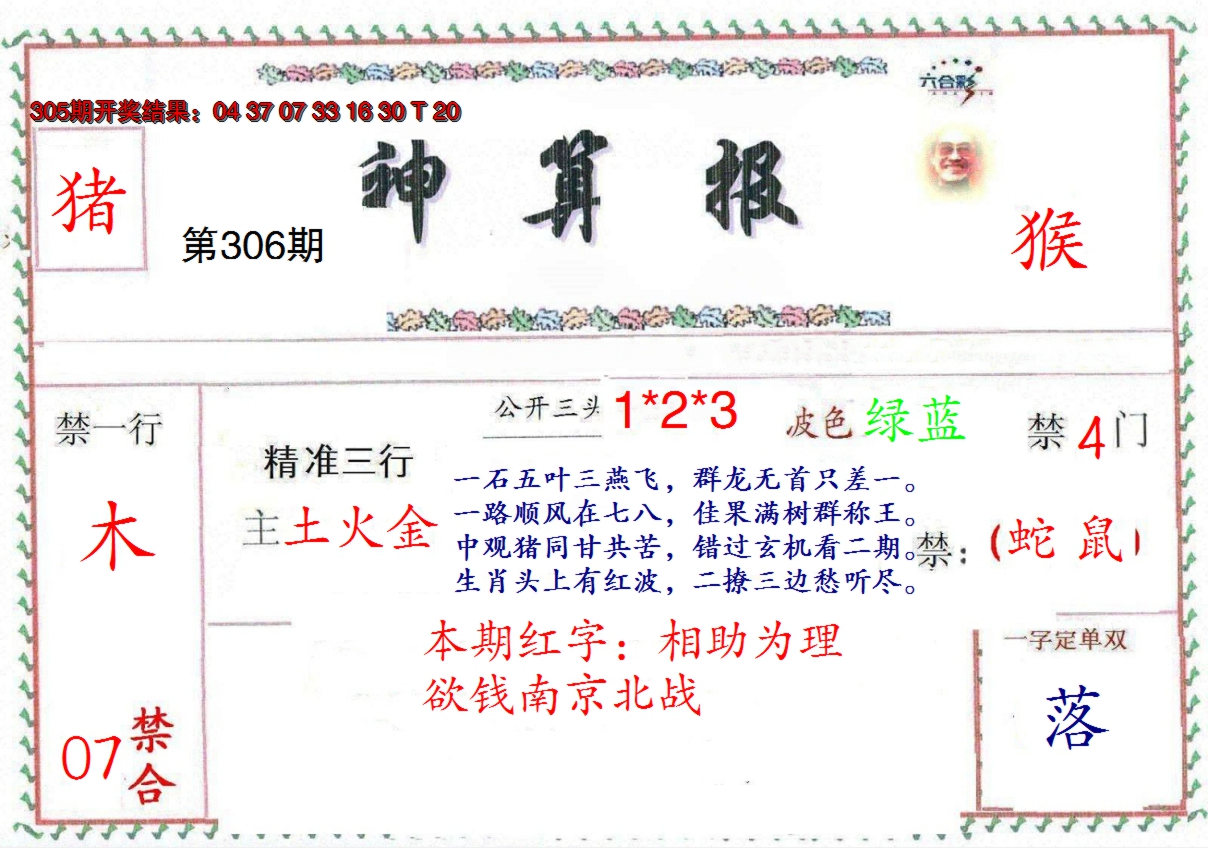 六合彩
305期开奖结果：04 37 07 33 16 30 T 20
神算报
猪
第306期
猴
公开三头 1*2*3
波色 绿蓝
禁4门
禁一行
木
精准三行
主土火金
一石五叶三燕飞，群龙无首只差一。
一路顺风在七八，佳果满树群称王。
中观猪同甘共苦，错过玄机看二期。
生肖头上有红波，二撩三边愁听尽。
禁：（蛇 鼠）
本期红字：相助为理
欲钱南京北战
一字定单双
落
07禁合